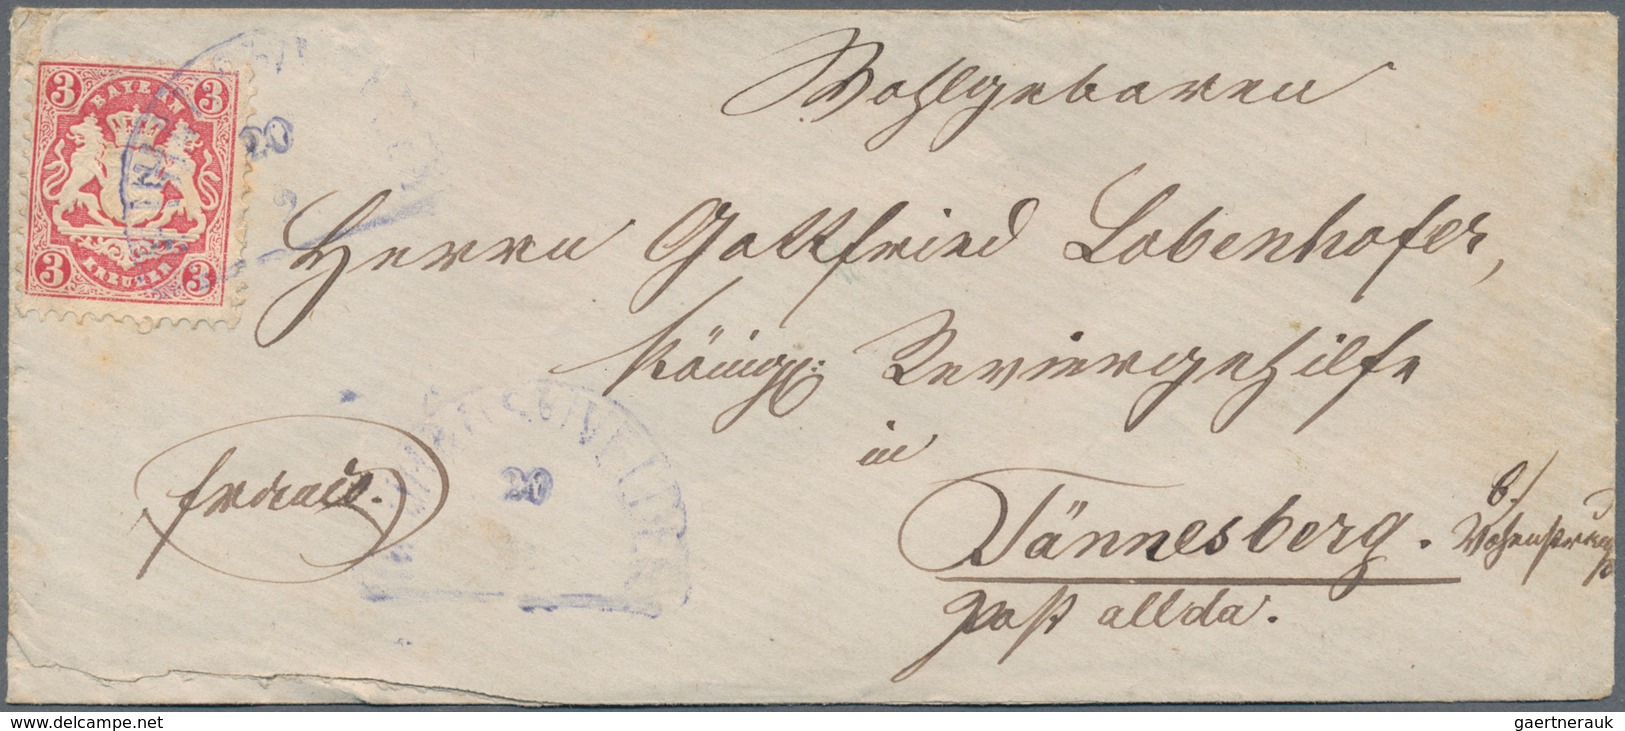 3 BAYERN 3
3 KREUZER 3
20
Wohlgeboren
Herrn Gottfried Lobenhofer,
Königl: Reviergehilfe
in
franco.
20
Tännesberg.
b/
Vohenstrauß
Post allda.
www.delcampe.net
gaertnerauk